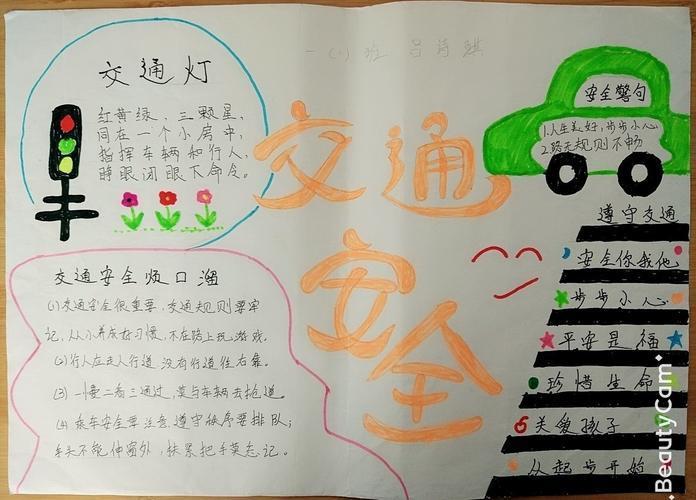 一(1)班 吕诗琪
交通灯
红黄绿、三颗星,
同在一个小房中,
指挥车辆和行人,
睁眼闭眼下命令。
交通
安全
安全警句
1.人生美好,步步小心
2.路无规则不畅
遵守交通
安全你我他
步步小心
平安是福
珍惜生命
关爱孩子
从起步开始
交通安全顺口溜
(1)交通安全很重要,交通规则要牢
记,从小养成好习惯,不在路上玩游戏。
(2)行人应走人行道,没有行道往右靠。
(3)一慢二看三通过,莫与车辆去抢道。
(4)乘车安全要注意遵守秩序要排队;
手头不能伸窗外,扶紧把手莫忘记。
BeautyCam